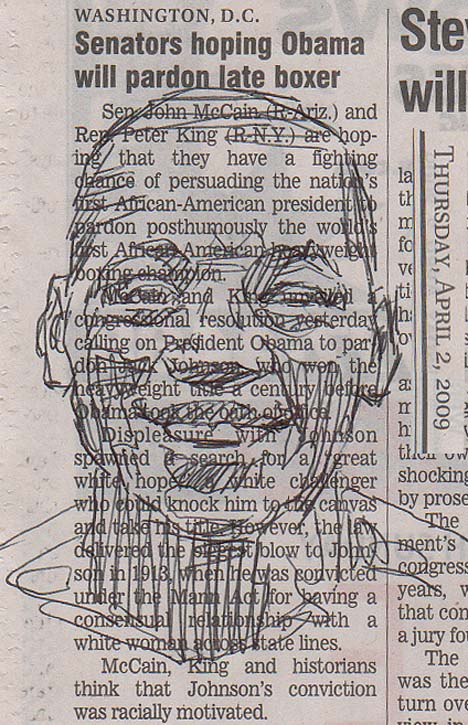 WASHINGTON, D.C.
Senators hoping Obama
will pardon late boxer
Sen. John McCain (R-Ariz.) and
Rep. Peter King (R-N.Y.) are hop-
ing that they have a fighting
chance of persuading the nation's
first African-American president to
pardon posthumously the world's
first African-American heavyweight
boxing champion.
McCain and King unveiled a
congressional resolution yesterday
calling on President Obama to par-
don Jack Johnson, who won the
heavyweight title a century before
Obama took the oath of office.
Displeasure with Johnson
spawned a search for a "great
white hope," a white challenger
who could knock him to the canvas
and take his title. However, the law
delivered the biggest blow to John-
son in 1913, when he was convicted
under the Mann Act for having a
consensual relationship with a
white woman across state lines.
McCain, King and historians
think that Johnson's conviction
was racially motivated.
Stev
will
THURSDAY, APRIL 2, 2009
la
th
m
fo
ve
ti
ha
ov
as
m
hi
their ow
shocking
by prose
The
ment's
congress
years, w
that con
a jury fo
The
was the
turn ove
view in